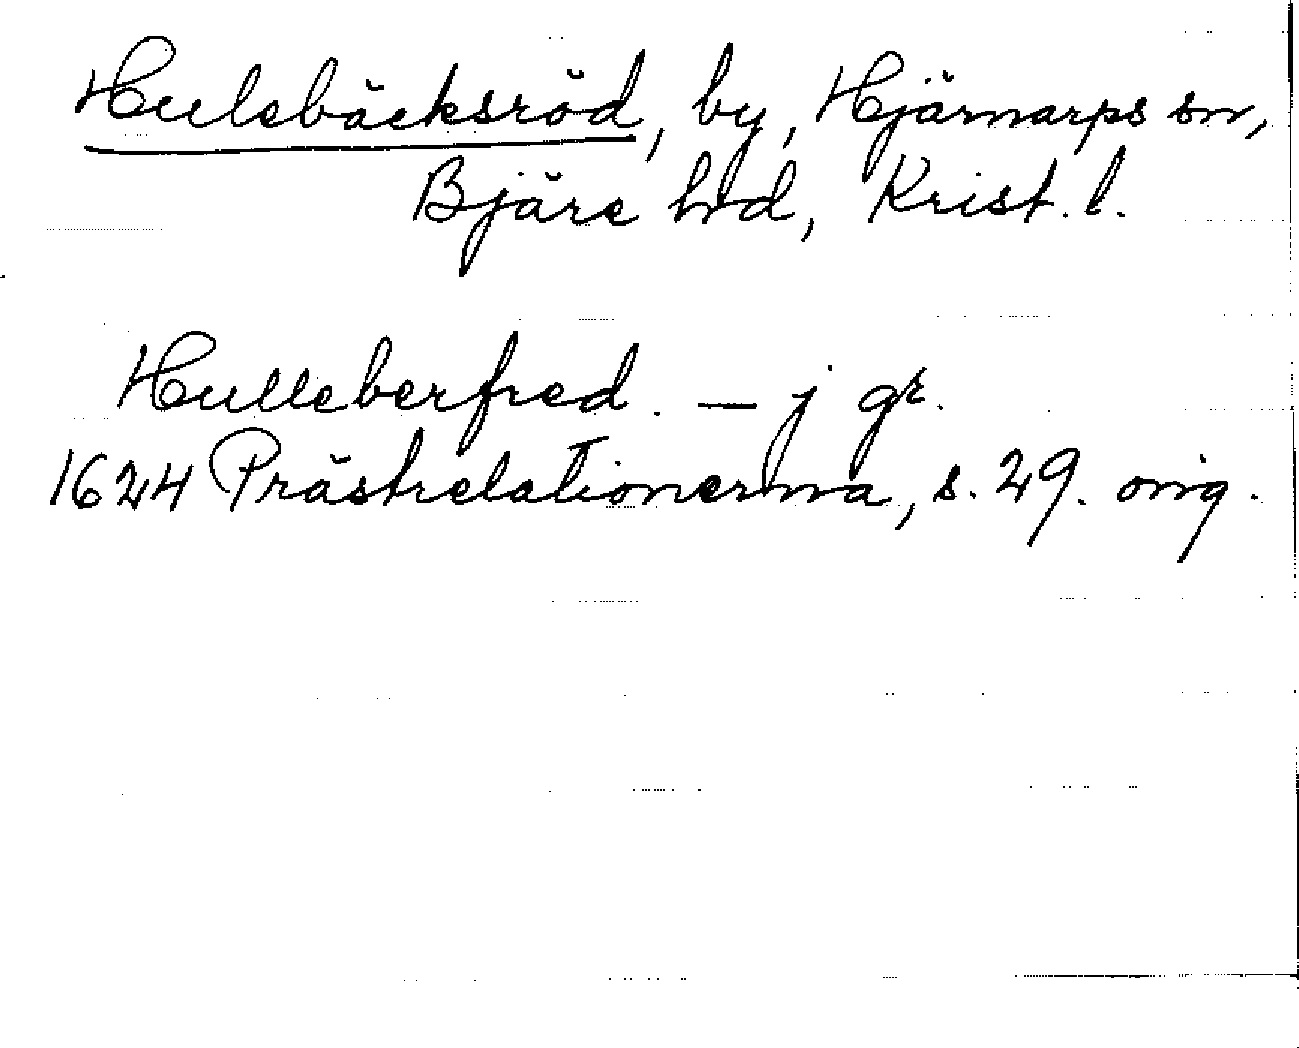 Hulebäcksröd, by, Hjärnarps sn,
Bjäre hrd, Krist. l.
Hulleberfred. — j gr.
1624 Prästrelationerna, s. 29. orig.